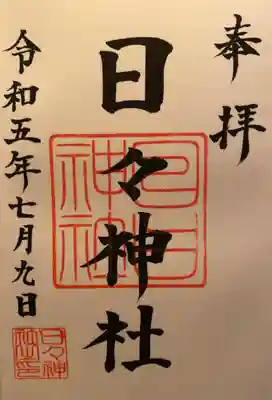 奉拝
日々神社
日々神社
令和五年七月九日
日々神社印